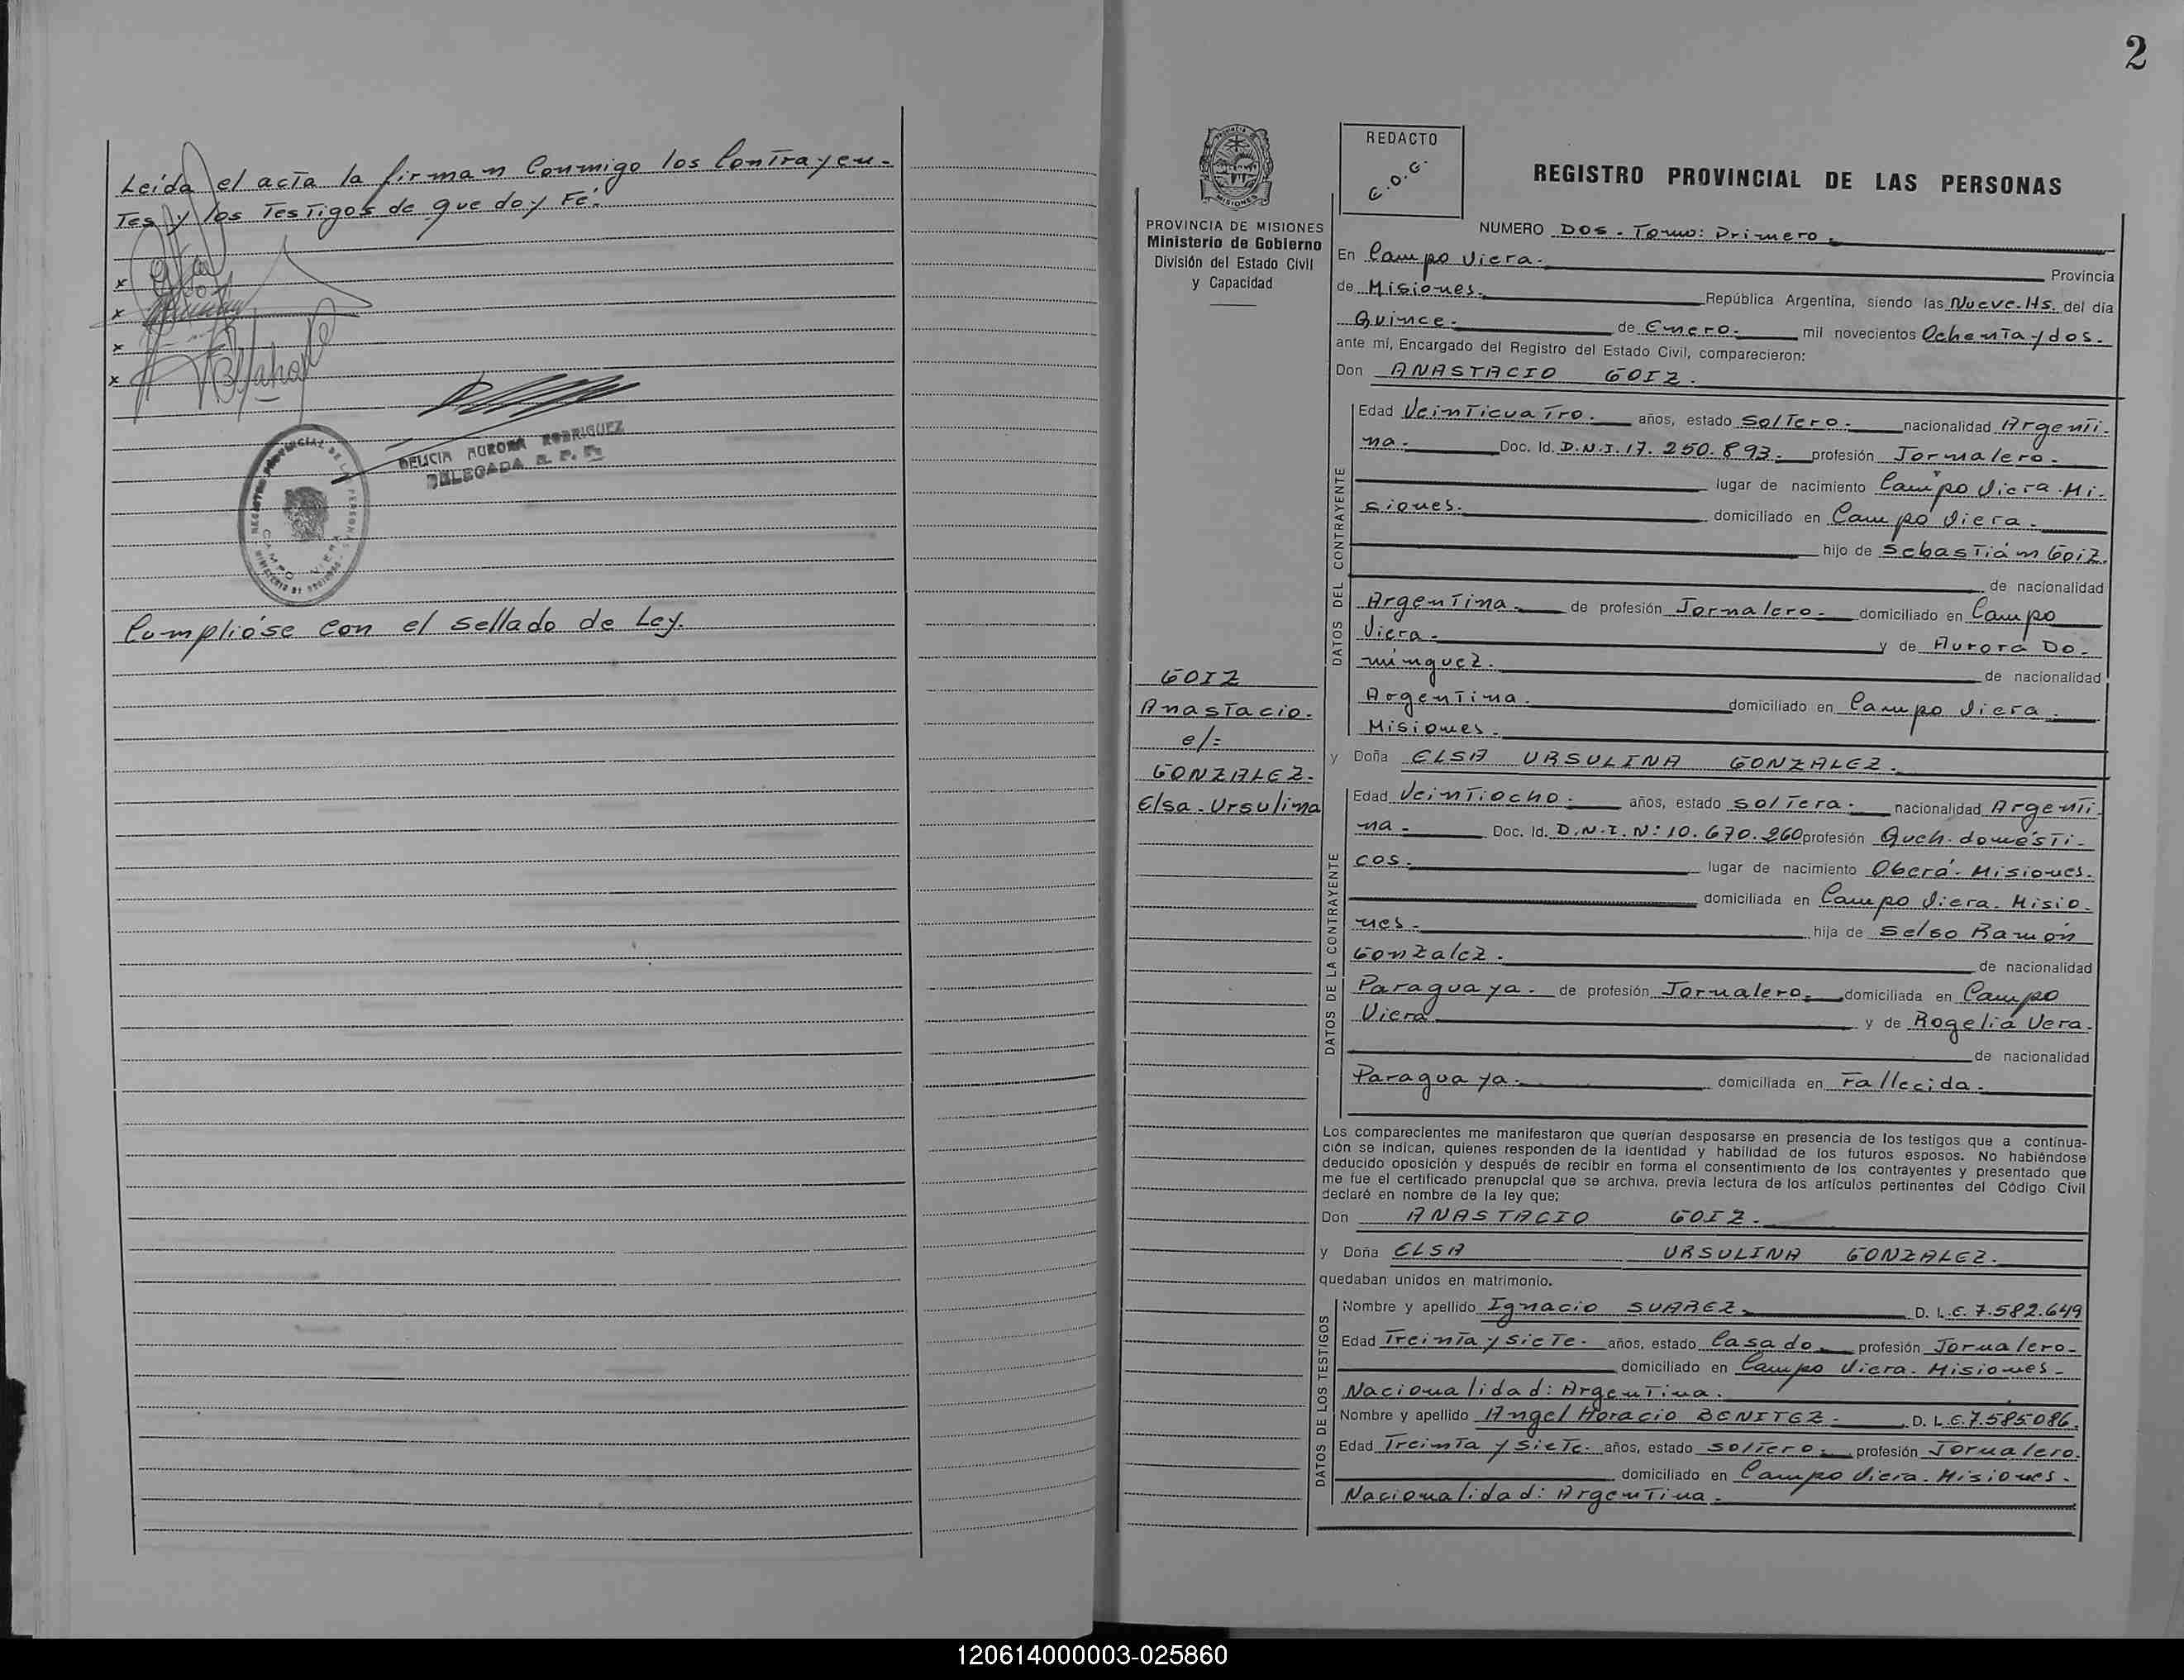 Leida el acta la firman Conmigo los Contrayen-
Tes y los Testigos de que doy Fé.
x
x
x
x
DELICIA AURORA RODRIGUEZ
DELEGADA R. P. P.
Cumplióse con el sellado de Ley.
2
REDACTO
C.O.G.
REGISTRO PROVINCIAL DE LAS PERSONAS
PROVINCIA DE MISIONES
Ministerio de Gobierno
División del Estado Civil
y Capacidad
NUMERO DOS - Tomo: Primero.
En Campo Viera. Provincia
de Misiones. República Argentina, siendo las Nueve. Hs. del día
Quince. de Enero. mil novecientos Ochenta y dos.
ante mí, Encargado del Registro del Estado Civil, comparecieron:
Don ANASTACIO GOIZ.
DATOS DEL CONTRAYENTE
Edad Veinticuatro. años, estado Soltero. nacionalidad Argenti-
na. Doc. Id. D.N.I. 17.250.893. profesión Jornalero.
lugar de nacimiento Campo Viera. Mi-
siones. domiciliado en Campo Viera.
hijo de Sebastián Goiz.
de nacionalidad
Argentina. de profesión Jornalero. domiciliado en Campo
Viera. y de Aurora Do-
minguez. de nacionalidad
Argentina. domiciliado en Campo Viera.
Misiones.
GOIZ
Anastacio.
c/:
GONZALEZ.
Elsa-Ursulina
y Doña ELSA URSULINA GONZALEZ.
DATOS DE LA CONTRAYENTE
Edad Veintiocho. años, estado Soltera. nacionalidad Argenti-
na. Doc. Id. D.N.I. Nº 10.670.260 profesión Queh. domésti-
cos. lugar de nacimiento Oberá- Misiones.
domiciliada en Campo Viera. Misio-
nes. hija de Selso Ramón
Gonzalez. de nacionalidad
Paraguaya. de profesión Jornalero. domiciliada en Campo
Viera y de Rogelia Vera.
de nacionalidad
Paraguaya. domiciliada en Fallecida.
Los comparecientes me manifestaron que querían desposarse en presencia de los testigos que a continua-
ción se indican, quienes responden de la identidad y habilidad de los futuros esposos. No habiéndose
deducido oposición y después de recibir en forma el consentimiento de los contrayentes y presentado que
me fue el certificado prenupcial que se archiva, previa lectura de los artículos pertinentes del Código Civil
declaré en nombre de la ley que:
Don ANASTACIO GOIZ.
y Doña ELSA URSULINA GONZALEZ.
quedaban unidos en matrimonio.
DATOS DE LOS TESTIGOS
Nombre y apellido Ignacio SUAREZ. D. L.E. 7.582.649
Edad Treinta y siete. años, estado Casado. profesión Jornalero-
domiciliado en Campo Viera. Misiones-
Nacionalidad: Argentina.
Nombre y apellido Angel Horacio BENITEZ. D. L.E. 7.585086.
Edad Treinta y siete. años, estado soltero. profesión Jornalero.
domiciliado en Campo Viera. Misiones.
Nacionalidad: Argentina.
120614000003-025860